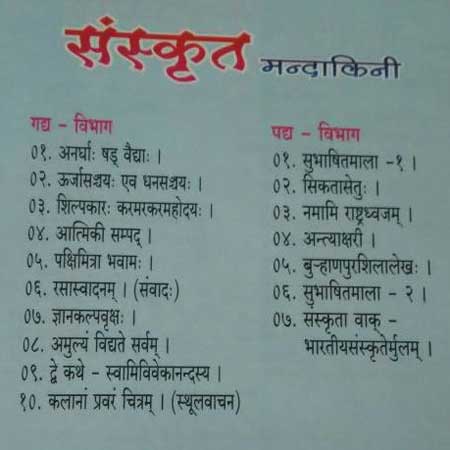 संस्कृत मन्दाकिनी
गद्य - विभाग
०१. अनर्घाः षड् वैद्याः ।
०२. ऊर्जासञ्चयः एव धनसञ्चयः ।
०३. शिल्पकारः करमरकरमहोदयः ।
०४. आत्मिकी सम्पद् ।
०५. पक्षिमित्रा भवामः ।
०६. रसास्वादनम् । (संवादः)
०७. ज्ञानकल्पवृक्षः ।
०८. अमुल्यं विद्यते सर्वम् ।
०९. द्वे कथे - स्वामिविवेकानन्दस्य ।
१०. कलानां प्रवरं चित्रम् । (स्थूलवाचन)
पद्य - विभाग
०१. सुभाषितमाला -१ ।
०२. सिकतासेतुः ।
०३. नमामि राष्ट्रध्वजम् ।
०४. अन्त्याक्षरी ।
०५. बुऱ्हाणपुरशिलालेखः ।
०६. सुभाषितमाला - २ ।
०७. संस्कृता वाक् -
भारतीयसंस्कृतेर्मुलम् ।